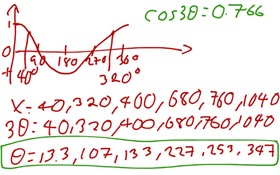 cos3θ=0.766
1
0
-1
40° 90 180 270 360
320°
x=40,320,400,680,760,1040
3θ=40,320,400,680,760,1040
θ=13.3,107,133,227,253,347